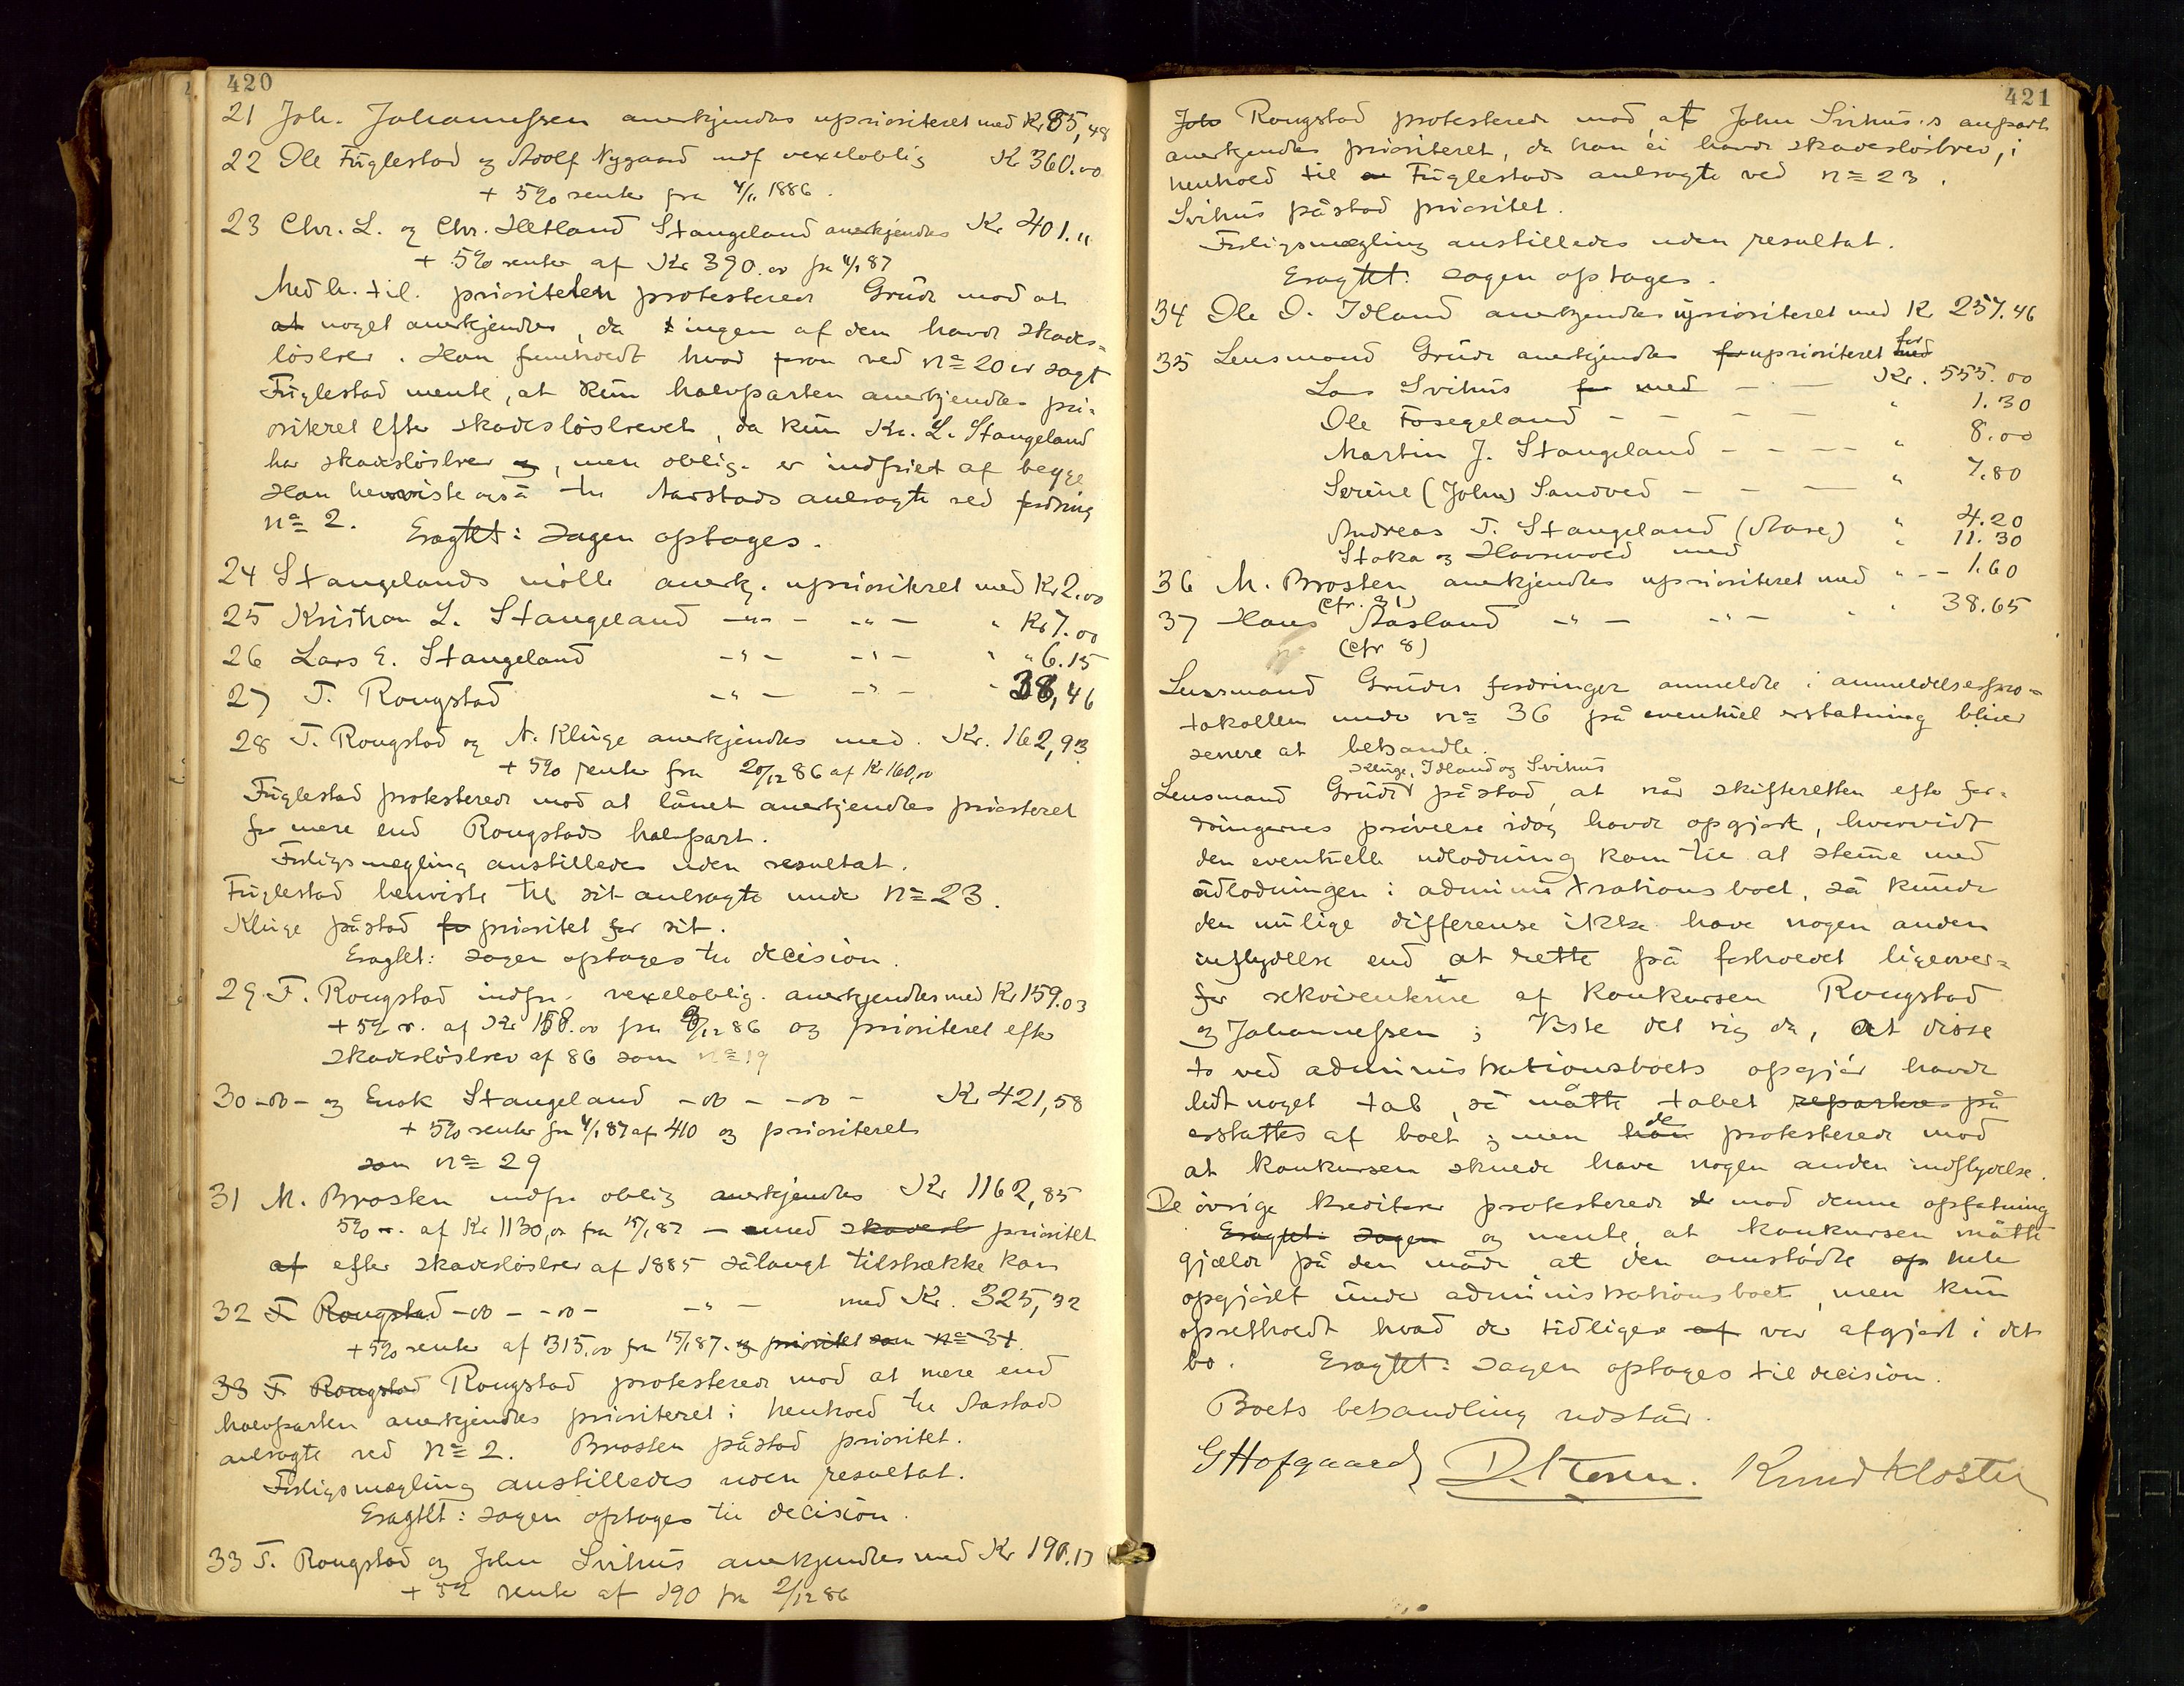 420
21 Joh. Johannessen anerkjendes uprioriteret med Kr 85,48
22 Ole Fuglestad og Adolf Nygaard indf vexeloblig Kr 360.00
+ 5% renter fra 4/11 1886.
23 Chr. L. og Chr. Hetland Stangeland anerkjendes Kr 401.11
+ 5% renter af Kr 390.00 fra 4/1 87
Med h. til. prioriteten protesterede Grude mod at
at noget anerkjendtes, da ingen af dem havde skades-
løsbrev. Han fremholdt hvad foran ved no 20 er sagt
Fuglestad mente, at kun halvparten anerkjendtes pri-
oriteret efter skadesløsbrevet, da kun Kr. L. Stangeland
har skadesløsbrev, men oblig. er indfriet af begge
Han henviste også til Aarstads anbragte ved fordring
no 2. Eragtet: Sagen optages.
24 Stangelands mølle anerkj. uprioriteret med Kr 2.00
25 Kristian L. Stangeland -"- -"- " Kr 7.00
26 Lars E. Stangeland -"- -"- " " 6.15
27 T. Rongstad -"- -"- " 38,46
28 T. Rongstad og A. Kluge anerkjendtes med. Kr. 162,93
+ 5% renter fra 20/12 86 af Kr 160,00
Fuglestad protesterede mod at lånet anerkjendtes prioriteret
for mere end Rongstads halvpart.
Forligsmægling anstilledes uden resultat.
Fuglestad henviste til sit anbragte under no 23.
Kluge påstod for prioritet for sit.
Eragtet: sagen optages til decision.
29 T. Rongstad indfri. vexeloblig. anerkjendtes med Kr 159.03
+ 5% r. af Kr 158.00 fra 8/12 86 og prioriteret efter
skadesløsbrev af 86 som no 19
30 -do- og Enok Stangeland -do- -do- Kr 421,58
+ 5% renter fra 4/1 87 af 410 og prioriteret
som no 29
31 M. Brosten indfri oblig anerkjendtes Kr 1162,85
5% r. af Kr 1130,00 fra 15/1 87 - med skadesl prioritet
af efter skadesløsbrev af 1885 sålangt tilstrække kan
32 T Rongstad -do- -do- -"- med Kr. 325,32
+ 5% renter af 315,00 fra 15/1 87. og prioritet som no 31.
33 T Rongstad Rongstad protesterede mod at mere end
halvparten anerkjendtes prioriteret i henhold til Aastads
anbragte ved no 2. Brosten påstod prioritet.
Forligsmægling anstilledes uden resultat.
Eragtet: sagen optages til decision.
33 T. Rongstad og John Svihus anerkjendtes med Kr 190.17
+ 5% rente af 190 fra 2/12 86
421
Rongstad protesterede mod, at John Svihus's anpart
anerkjendtes prioriteret, da han ei havde skadesløsbrev, i
henhold til Fuglestads anbragte ved no 23.
Svihus påstod prioritet.
Forligsmægling anstilledes uden resultat.
Eragtet: sagen optages.
34 Ole O. Idland anerkjendtes uprioriteret med Kr 257.46
35 Lensmand Grude anerkjendtes for uprioriteret med for
Lars Svihus for med - - Kr. 555.00
Ole Fosegeland - - - - " 1.30
Martin J. Stangeland - - - - " 8.00
Serine (John) Sandved - - - " 7.80
Andreas T. Stangeland (Aase) " 4.20
Stoka og Hovsmoed med " 11.30
36 M. Brosten anerkjendtes uprioriteret med " - - 1.60
(cfr. 31)
37 Hans Aasland -"- -"- " " 38.65
(cfr 8)
Lensmand Grudes fordringer anmeldte i anmeldelsespro-
tokollen under no 36 på eventuel erstatning bliver
senere at behandle.
Kluge, Idland og Svihus
Lensmand Grude påstod, at når skifteretten efter for-
dringernes prøvelse idag havde opgjort, hvorvidt
den eventuelle udlodning kom til at stemme med
udlodningen i administrationsboet, så kunde
den mulige differense ikke have nogen anden
indflydelse end at rette på forholdet ligeover-
for rekvirenterne af konkursen Rongstad
og Johannessen; Viste det sig da, at disse
to ved administrationsboets opgjør havde
lidt noget tab, så måtte tabet repartere på
erstattes af boet; men han de protesterede mod
at konkursen skulde have nogen anden indflydelse.
De øvrige kreditorer protesterede mod denne opfatning
Eragtet: Sagen og mente, at konkursen måtte
gjælde på den måde at den omstødte hele
opgjøret under administrationsboet, men kun
opretholdt hvad der tidligere af var afgjort i det
bo. Eragtet: Sagen optages til decision.
Boets behandling udstår.
GHofgaard Knud Kloster